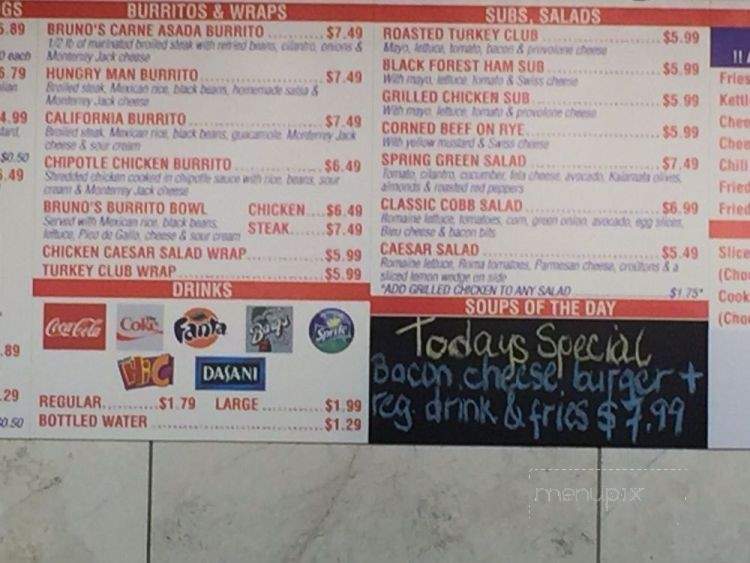 GS
5.89
0 each
5.79
lian
4.99
tard,
$0.50
5.49
.89
.29
$0.50
BURRITOS & WRAPS
BRUNO'S CARNE ASADA BURRITO $7.49
1/2 lb of marinated broiled steak with refried beans, cilantro, onions &
Monterrey Jack cheese
HUNGRY MAN BURRITO $7.49
Broiled steak, Mexican rice, black beans, homemade salsa &
Monterrey Jack cheese
CALIFORNIA BURRITO $7.49
Broiled steak, Mexican rice, black beans, guacamole, Monterrey Jack
cheese & sour cream
CHIPOTLE CHICKEN BURRITO $6.49
Shredded chicken cooked in chipotle sauce with rice, beans, sour
cream & Monterrey Jack cheese
BRUNO'S BURRITO BOWL CHICKEN....$6.49
Served with Mexican rice, black beans, STEAK......$7.49
lettuce, Pico de Gallo, cheese & sour cream
CHICKEN CAESAR SALAD WRAP $5.99
TURKEY CLUB WRAP $5.99
DRINKS
Coca-Cola
Coke
Fanta
Barq's
Sprite
HI-C
DASANI
REGULAR.......$1.79 LARGE $1.99
BOTTLED WATER $1.29
SUBS, SALADS
ROASTED TURKEY CLUB $5.99
Mayo, lettuce, tomato, bacon & provolone cheese
BLACK FOREST HAM SUB $5.99
With mayo, lettuce, tomato & Swiss cheese
GRILLED CHICKEN SUB $5.99
With mayo, lettuce, tomato & provolone cheese
CORNED BEEF ON RYE $5.99
With yellow mustard & Swiss cheese
SPRING GREEN SALAD $7.49
Tomato, cilantro, cucumber, feta cheese, avocado, Kalamata olives,
almonds & roasted red peppers
CLASSIC COBB SALAD $6.99
Romaine lettuce, tomatoes, corn, green onion, avocado, egg slices,
Bleu cheese & bacon bits
CAESAR SALAD $5.49
Romaine lettuce, Roma tomatoes, Parmesan cheese, croûtons & a
sliced lemon wedge on side
*ADD GRILLED CHICKEN TO ANY SALAD $1.75*
SOUPS OF THE DAY
Todays Special
Bacon cheese burger +
reg. drink & fries $7.99
Fries
Kettl
Chee
Chee
Chili
Fried
Fried
Slice
(Choo
Cook
(Choo
menupix